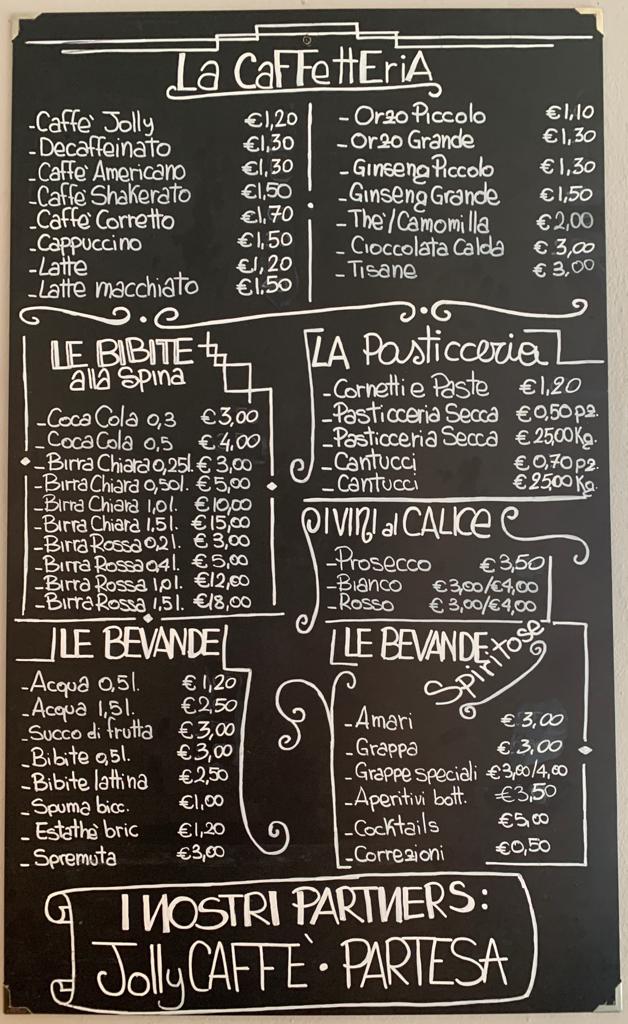 La CaffettEriA
-Caffè Jolly €1,20
-Decaffeinato €1,30
-Caffè Americano €1,30
-Caffè Shakerato €1,50
-Caffè Corretto €1.70
-Cappuccino €1,50
-Latte €1,20
-Latte macchiato €1.50
-Orzo Piccolo €1,10
-Orzo Grande €1,30
-Ginseng Piccolo €1,30
-Ginseng Grande €1,50
-Thè/Camomilla €2,00
-Cioccolata Calda € 3,00
-Tisane € 3,00
LE BIBITE
alla Spina
-Coca Cola 0,3 €3,00
-Coca Cola 0,5 €4,00
-Birra Chiara 0,25l. € 3,00
-Birra Chiara 0,50l. € 5,00
-Birra Chiara 1,0l. €10,00
-Birra Chiara 1,5l. €15,00
-Birra Rossa 0,2l. € 3,00
-Birra Rossa 0,4l. € 5,00
-Birra Rossa 1,0l. €12,00
-Birra Rossa 1,5l. €18,00
LA Pasticceria
-Cornetti e Paste €1,20
-Pasticceria Secca €0,50pz.
-Pasticceria Secca €25,00Kg.
-Cantucci €0,70pz.
-Cantucci €25,00Kg.
I VINI al CALICE
-Prosecco €3,50
-Bianco €3,00/€4,00
-Rosso €3,00/€4,00
LE BEVANDE
-Acqua 0,5l. €1,20
-Acqua 1,5l. €2,50
-Succo di frutta €3,00
-Bibite 0,5l. €3,00
-Bibite lattina €2,50
-Spuma bicc. €1,00
-Estathè bric €1,20
-Spremuta €3,00
LE BEVANDE
Spiritose
-Amari € 3,00
-Grappa € 3,00
-Grappe speciali €3,00/4,00
-Aperitivi bott. €3,50
-Cocktails €5,00
-Correzioni €0,50
I NOSTRI PARTNERS:
Jolly CAFFÈ · PARTESA